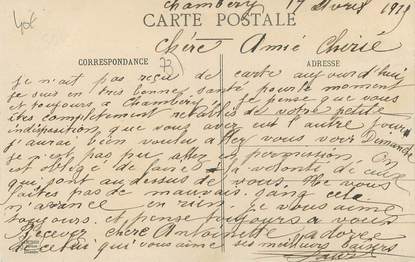 Chambéry 17 Avril 1919
CARTE POSTALE
Chère Amie Chérie
CORRESPONDANCE
ADRESSE
Je n'ait pas reçu de carte aujourd'hui
je suis en très bonne santé pour le moment
et toujours a Chambéry. Je pense que vous
êtes complètement rétablie de votre petite
indisposition, que vous avez eut l'autre jours
J'aurai bien voulu allez vous voir Dimanche
je n'est pas pu allez en permission On
est obligé de faire la volonté de ceux
qui sont au dessus de vous. Ne vous
faites pas de mauvais sang cela
n'avance en rien. Je vous aime
toujours et pense toujours a vous
Recever chère Antoinette adorée
de celui qui vous aime ses meilleurs baisers